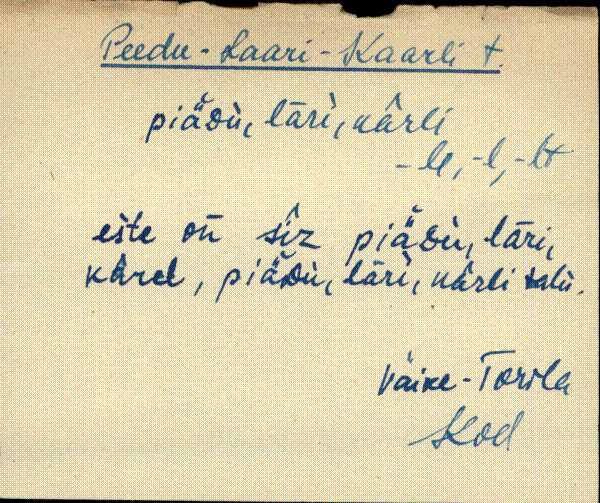 Peedu-Laari-Kaarli t.
piäᴅù, lāri, kârli
-le, -l, -lt
eśte on sîz piäᴅù, lāri,
kârel, piäᴅù, lāri, kârli talù.
Väike-Torila
Kod